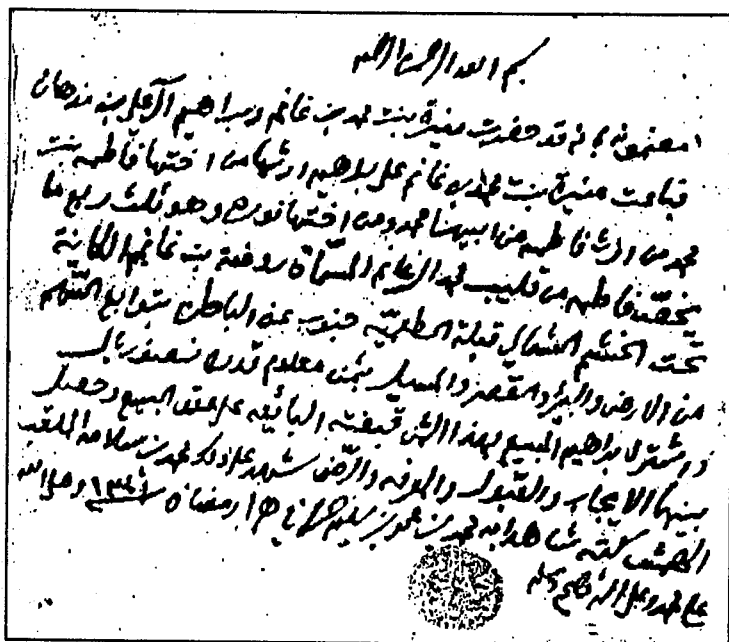 بسم الله الرحمن الرحيم
مضمونه بانه قد حضرت منيرة بنت محمد بن غانم وبراهيم آل علي بن
فباعت منيرة بنت محمد بن غانم على براهيم ارثها من اختها فاطمه بنت
محمد من ارث فاطمه من ابيهن محمد ومن اختها نوره وهو ثلث ربع ما
يخص فاطمه من قليب محمد الغانم المسماة روضة بن غانم الكاينة
تحت الخشم الشمالي قبلة جنوب عن الباطن بتوابع السهم
من الارض والبئر والقصر والمسيل بثمن معلوم قدره نصف ريال
واشترى براهيم المبيع بهذا الثمن قبضته البائعه على عقد البيع وحصل
بينهما الايجاب والقبول والمعرفه والرضى شهد على ذلك محمد بن سلامه الملقب
كتبه شاهدا به محمد بن رمضان وصلى الله
على محمد وعلى آله وصحبه وسلم